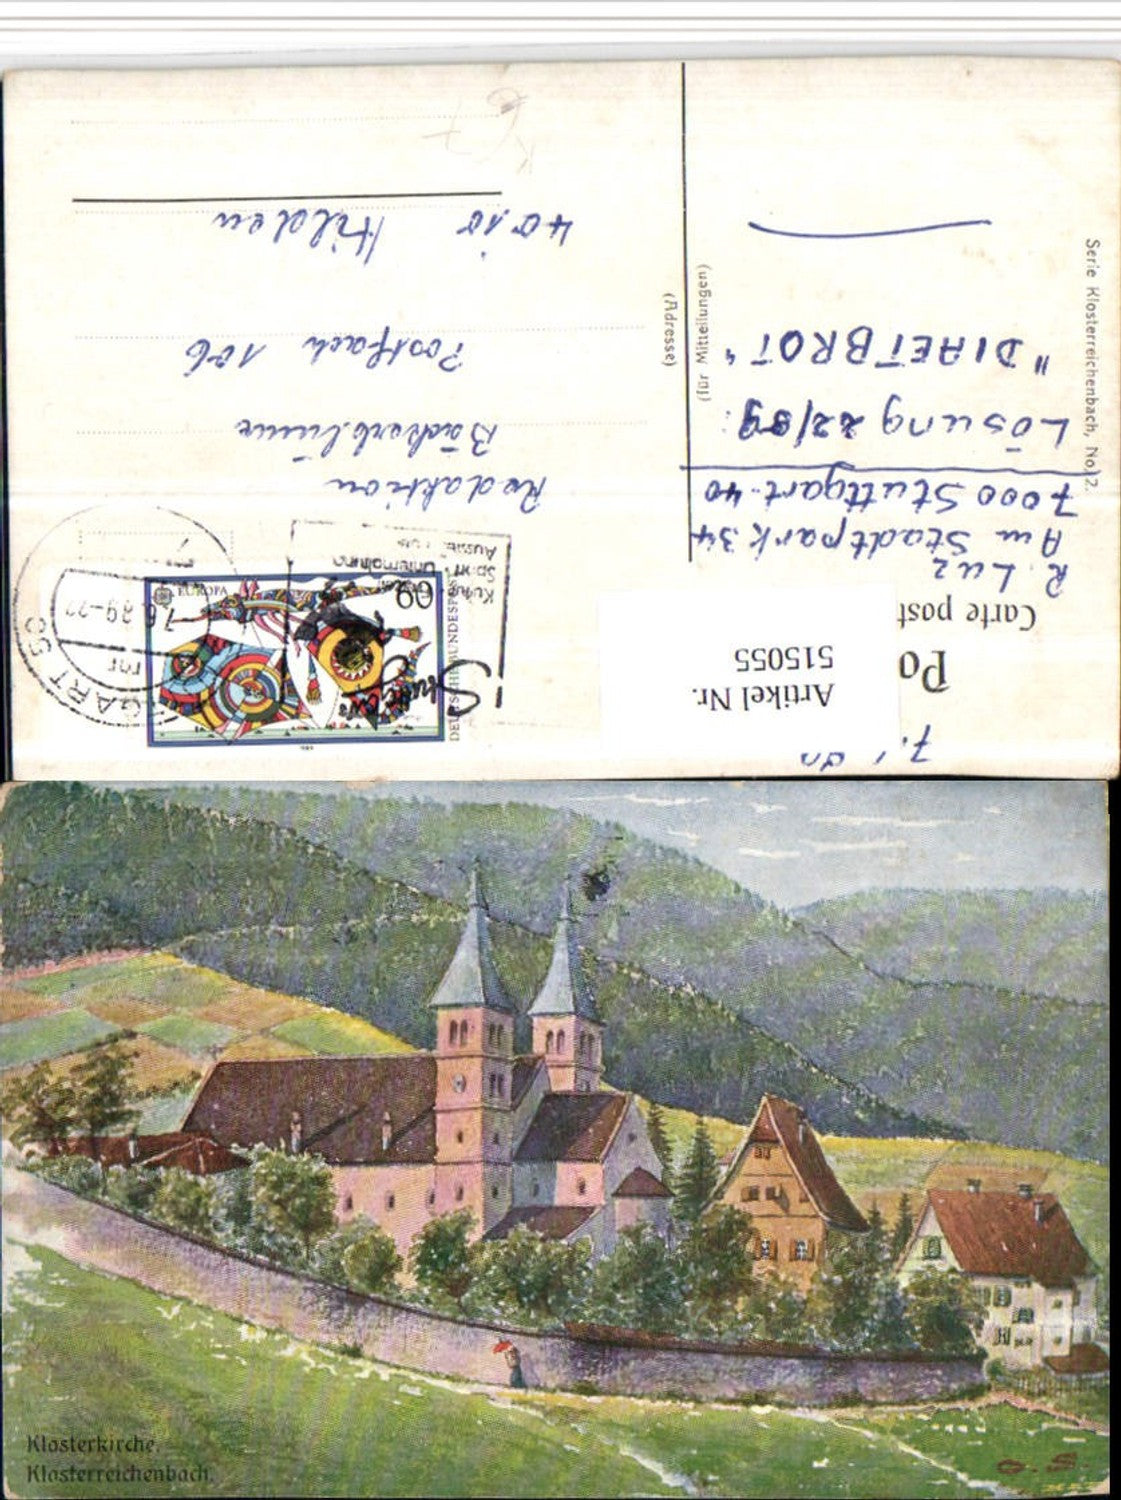 7.
Po
Carte post
Artikel Nr.
515055
R. Luz
Am Stadtpark 34
7000 Stuttgart-40
Lösung 22/89:
"DIAETBROT"
(für Mitteilungen)
(Adresse)
Serie Klosterreichenbach, No. 2.
DEUTSCHE BUNDESPOST
60
EUROPA
1989
Stuttgart
Kultur
Sport Unterhaltung
GART 50
7.6.89-22
mr
Redaktion
Bäckerblume
Postfach 106
4010 Hilden
Klosterkirche.
Klosterreichenbach.
O. S.